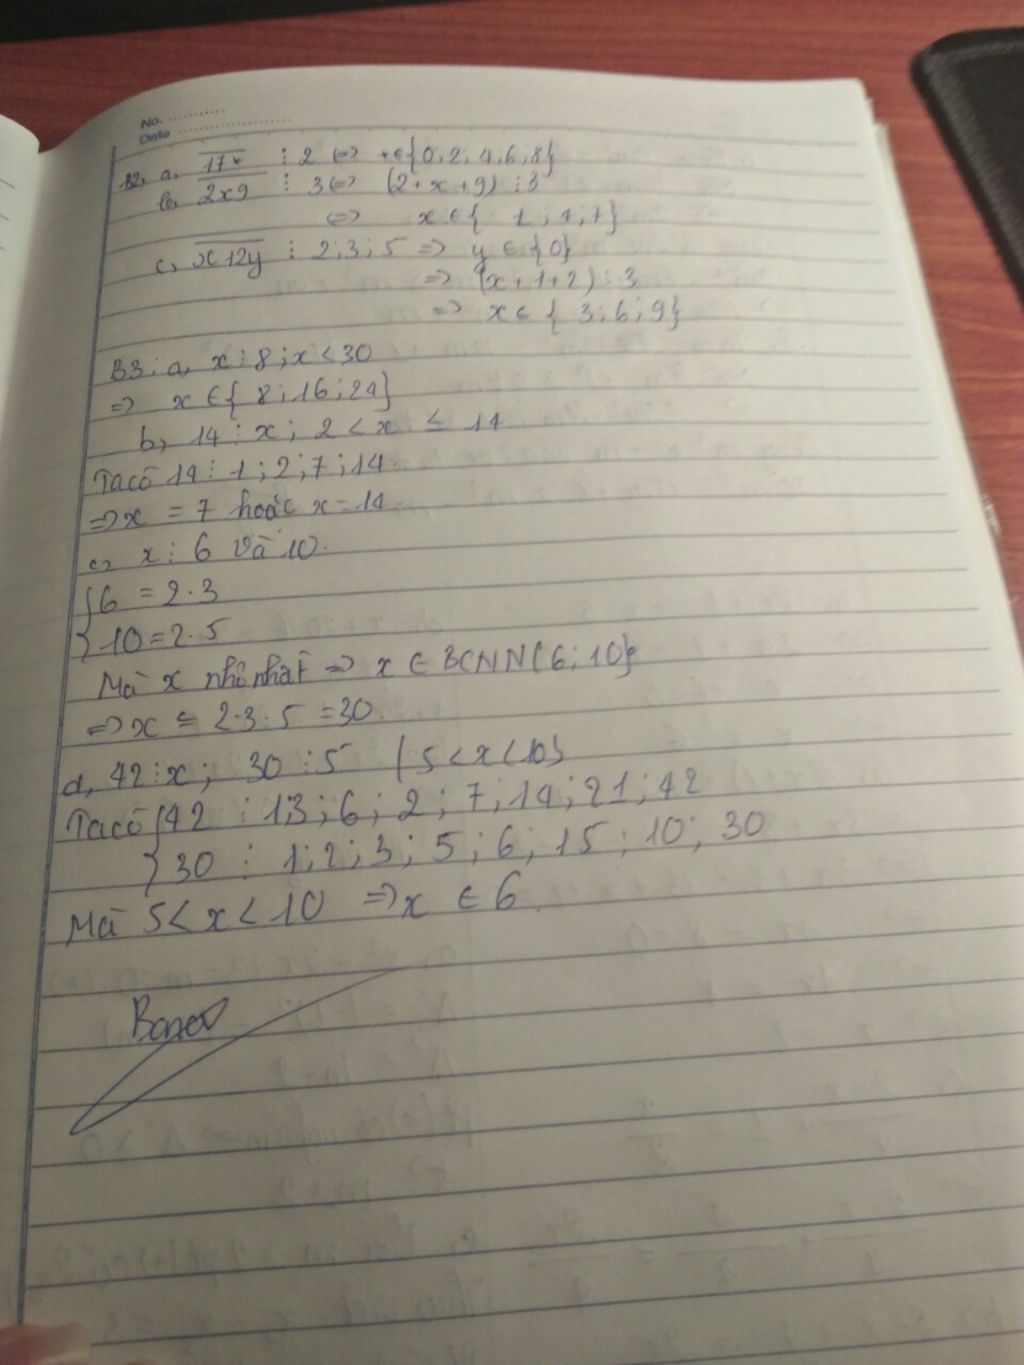 No. ............
Date ........................
B2, a, 17* ⋮ 2 <=> * ∈ {0, 2, 4, 6, 8}
b, 2x9 ⋮ 3 <=> (2+x+9) ⋮ 3
<=> x ∈ { 1; 4; 7}
c, x12y ⋮ 2; 3; 5 => y ∈ {0}
=> (x + 1+2) ⋮ 3
=> x ∈ { 3; 6; 9}
B3: a, x ⋮ 8 ; x < 30
=> x ∈ { 8; 16; 24}
b, 14 ⋮ x ; 2 < x ≤ 14
Ta có 14 ⋮ 1; 2; 7; 14.
=> x = 7 hoặc x = 14.
c, x ⋮ 6 và 10.
{ 6 = 2.3
10 = 2.5
Mà x nhỏ nhất => x ∈ BCNN{6; 10}
=> x = 2.3.5 = 30.
d, 42 ⋮ x ; 30 ⋮ 5 (5 < x < 10)
Ta có { 42 ⋮ 1,3; 6; 2; 7; 14; 21; 42
30 ⋮ 1; 2; 3; 5; 6; 15; 10; 30
Mà 5 < x < 10 => x ∈ 6.